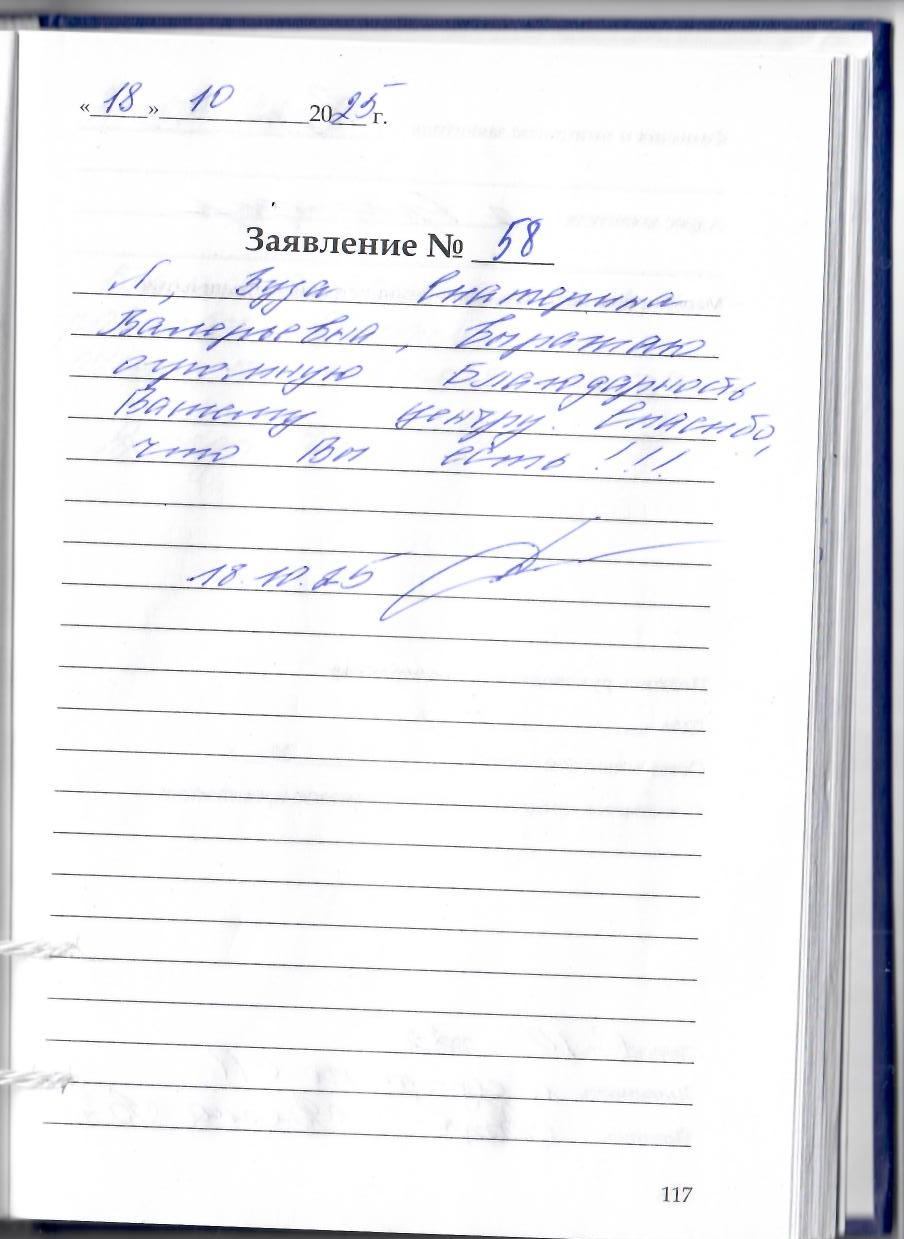 «18» 10 2025 г.
Заявление № 58
Я, Буза Екатерина
Валерьевна, выражаю
огромную благодарность
Вашему центру. Спасибо,
что Вы есть!!!
18.10.25
117